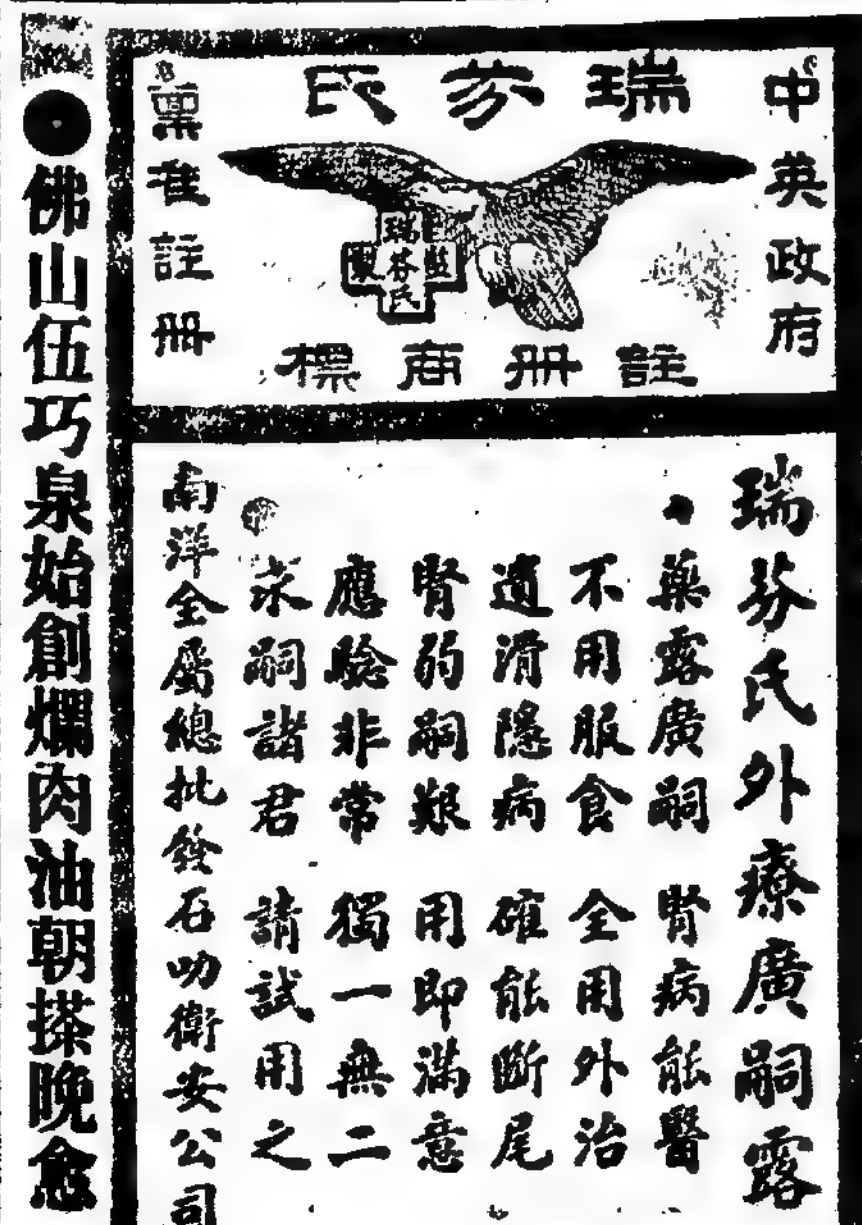 瑞芬氏
中英政府
稟准註冊
瑞芬氏
監製
註冊商標
瑞芬氏外療廣嗣露
藥露廣嗣 腎病能醫
不用服食 全用外治
遺滑隱病 確能斷尾
腎弱嗣艱 用即滿意
應驗非常 獨一無二
求嗣諸君 請試用之
南洋全屬總批發石叻衛安公司
佛山伍巧泉始創爛肉油朝搽晚愈